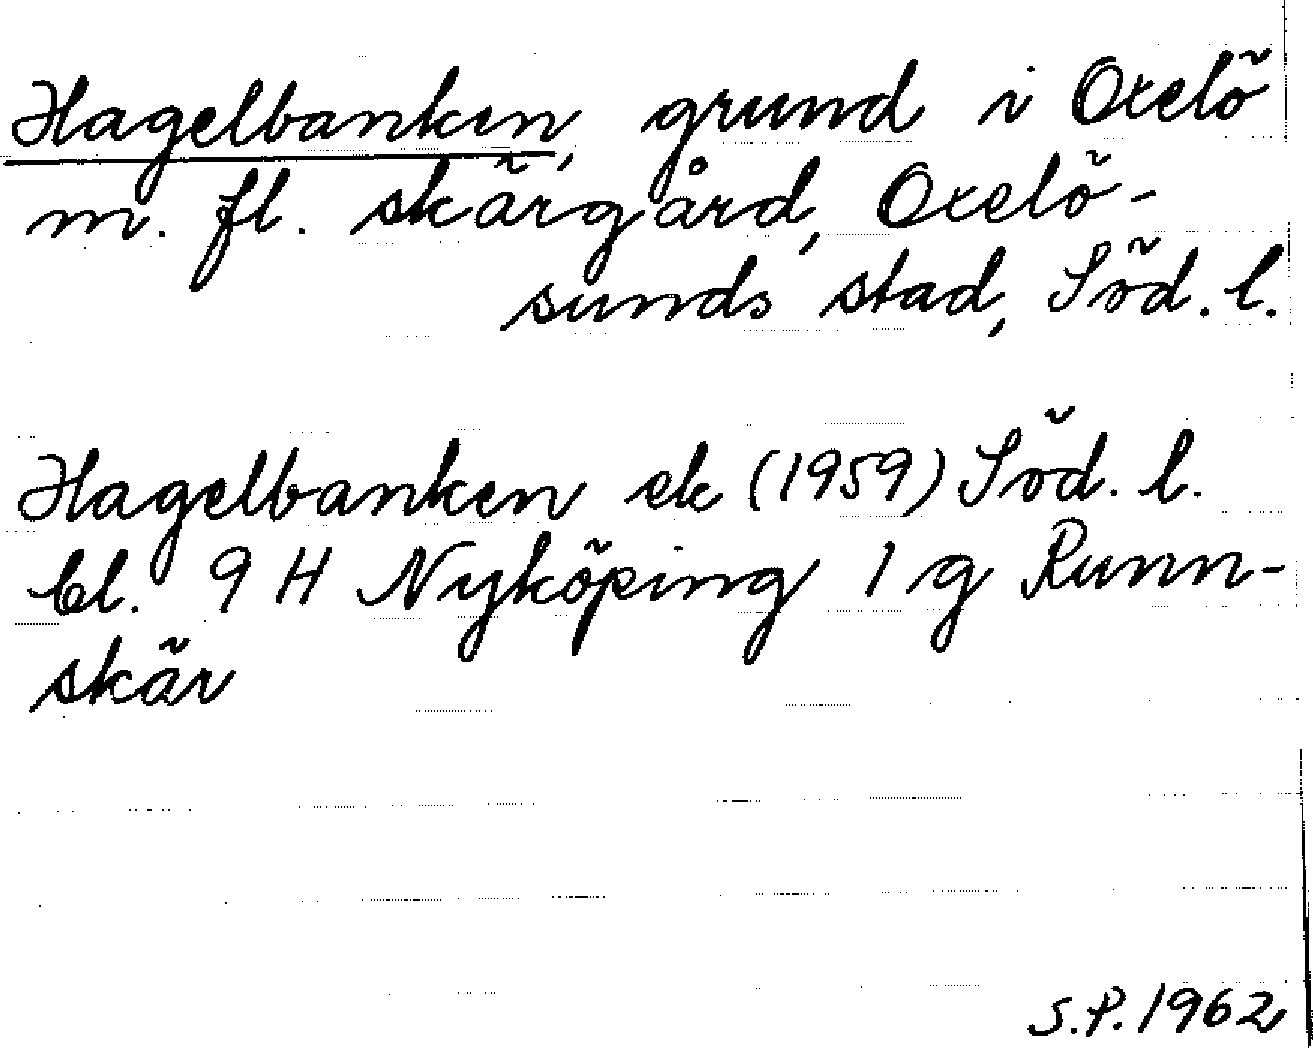 Hagelbanken, grund i Oxelö
m. fl. skärgård, Oxelö-
sunds stad, Söd. l.
Hagelbanken ek (1959) Söd. l.
bl. 9 H Nyköping 1 g Runn-
skär
S.P. 1962